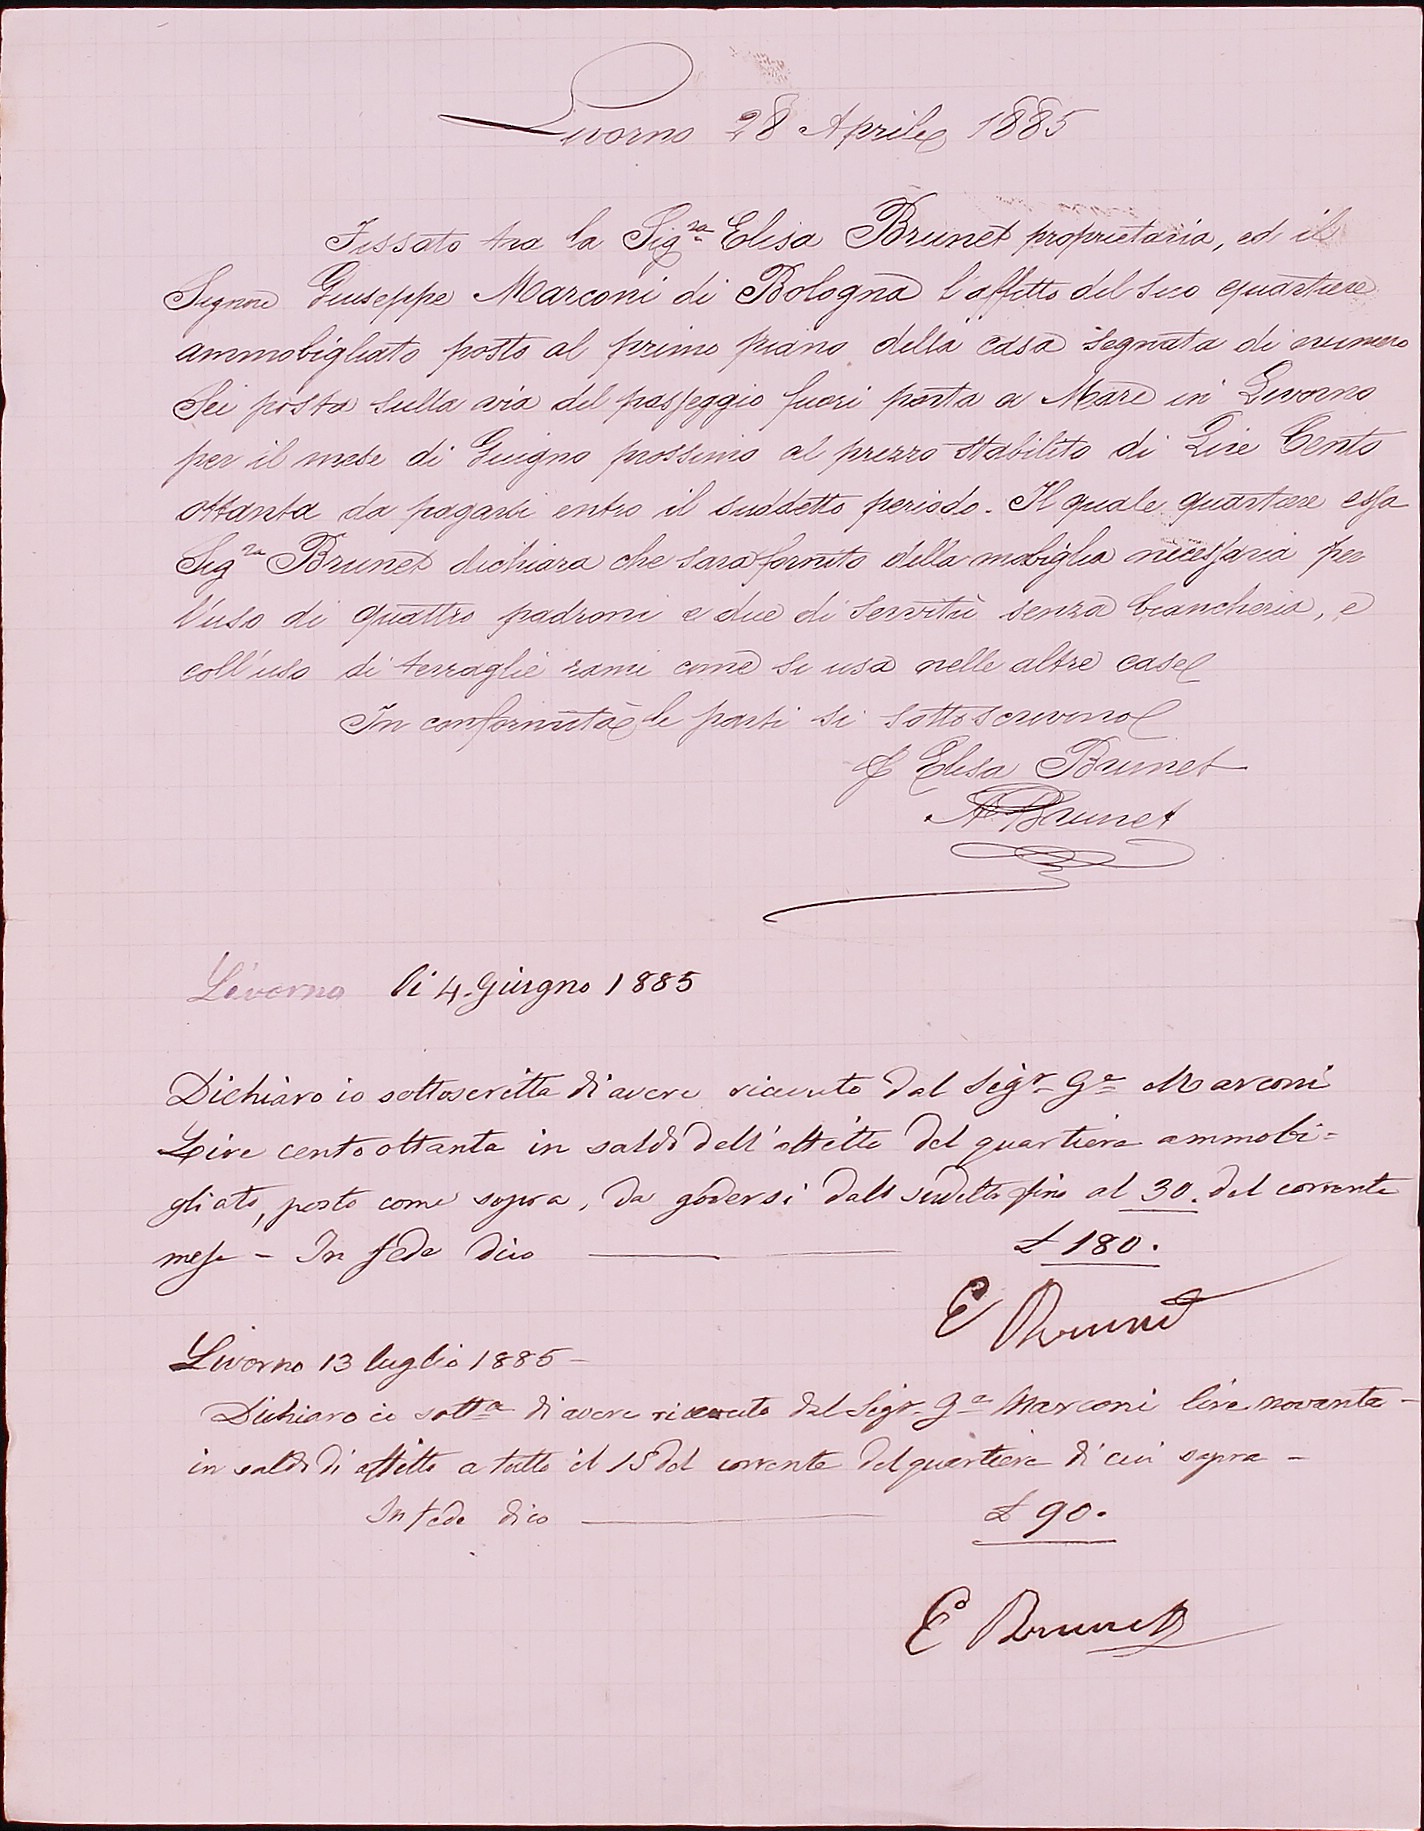 Livorno 28 Aprile 1885
Fissato tra la Sig.ra Elisa Brunet proprietaria, ed il
Signore Giuseppe Marconi di Bologna l'affitto del suo quartiere
ammobigliato posto al primo piano della casa segnata di numero
Sei posta sulla via del passeggio fuori porta a Mare in Livorno
per il mese di Giugno prossimo al prezzo stabilito di Lire Cento
ottanta da pagarsi entro il suddetto periodo. Il quale quartiere essa
Sig.ra Brunet dichiara che sara fornito della mobiglia necessaria per
l'uso di quattro padroni e due di servitù senza biancheria, e
coll'uso di terraglie rami come si usa nelle altre case
In conformità le parti si sottoscrivono
Elisa Brunet
A Brunet
Livorno li 4. Giugno 1885
Dichiaro io sottoscritta di avere ricevuto dal Sigr. Ge Marconi
Lire cento ottanta in saldo dell'affitto del quartiere ammobi=
gliato, posto come sopra, da godersi dallo sudetto fino al 30. del corrente
mese - In fede dico £ 180.
E Brunet
Livorno 13 luglio 1885 -
Dichiaro io sotta di avere ricevuto dal Sigr. Ge Marconi lire novanta -
in saldo di affitto a tutto il 15 del corrente del quartiere di cui sopra -
In fede dico £ 90.
E Brunet